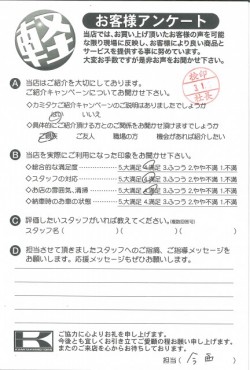 軽
お客様アンケート
当店では、お買い上げ頂いたお客様の声を可能
な限り現場に反映し、お客様により良い商品と
サービスを提供する事に努めています。
大変お手数ですが是非お声をお聞かせ下さい。
A 当店はご紹介を大切にしております。
ご紹介キャンペーンについてお聞かせ下さい。
・カミタケご紹介キャンペーンのご説明はありましたでしょうか
はい いいえ
・具体的にご紹介頂ける方とのご関係をお聞き頂けますでしょうか
ご親族 ご友人 職場の方 機会があれば紹介したい
B 当店を実際にご利用になった印象をお聞かせ下さい。
・総合的な満足度 5.大満足 4.満足 3.ふつう 2.やや不満 1.不満
・スタッフの対応 5.大満足 4.満足 3.ふつう 2.やや不満 1.不満
・お店の雰囲気、清掃 5.大満足 4.満足 3.ふつう 2.やや不満 1.不満
・納車時のお車の状態 5.大満足 4.満足 3.ふつう 2.やや不満 1.不満
C 評価したいスタッフがいれば教えてください。(複数回答可)
スタッフ名( )( )( )
D 担当させて頂きましたスタッフへのご指摘、ご指導メッセージを
お願いします。応援メッセージもぜひお願いします。
K
ご協力に心よりお礼を申し上げます。
今後とも宜しくお引き立てご愛顧の程お願い申し上げます。
またのご来店を心からお待ちしております。
担当( 今西 )